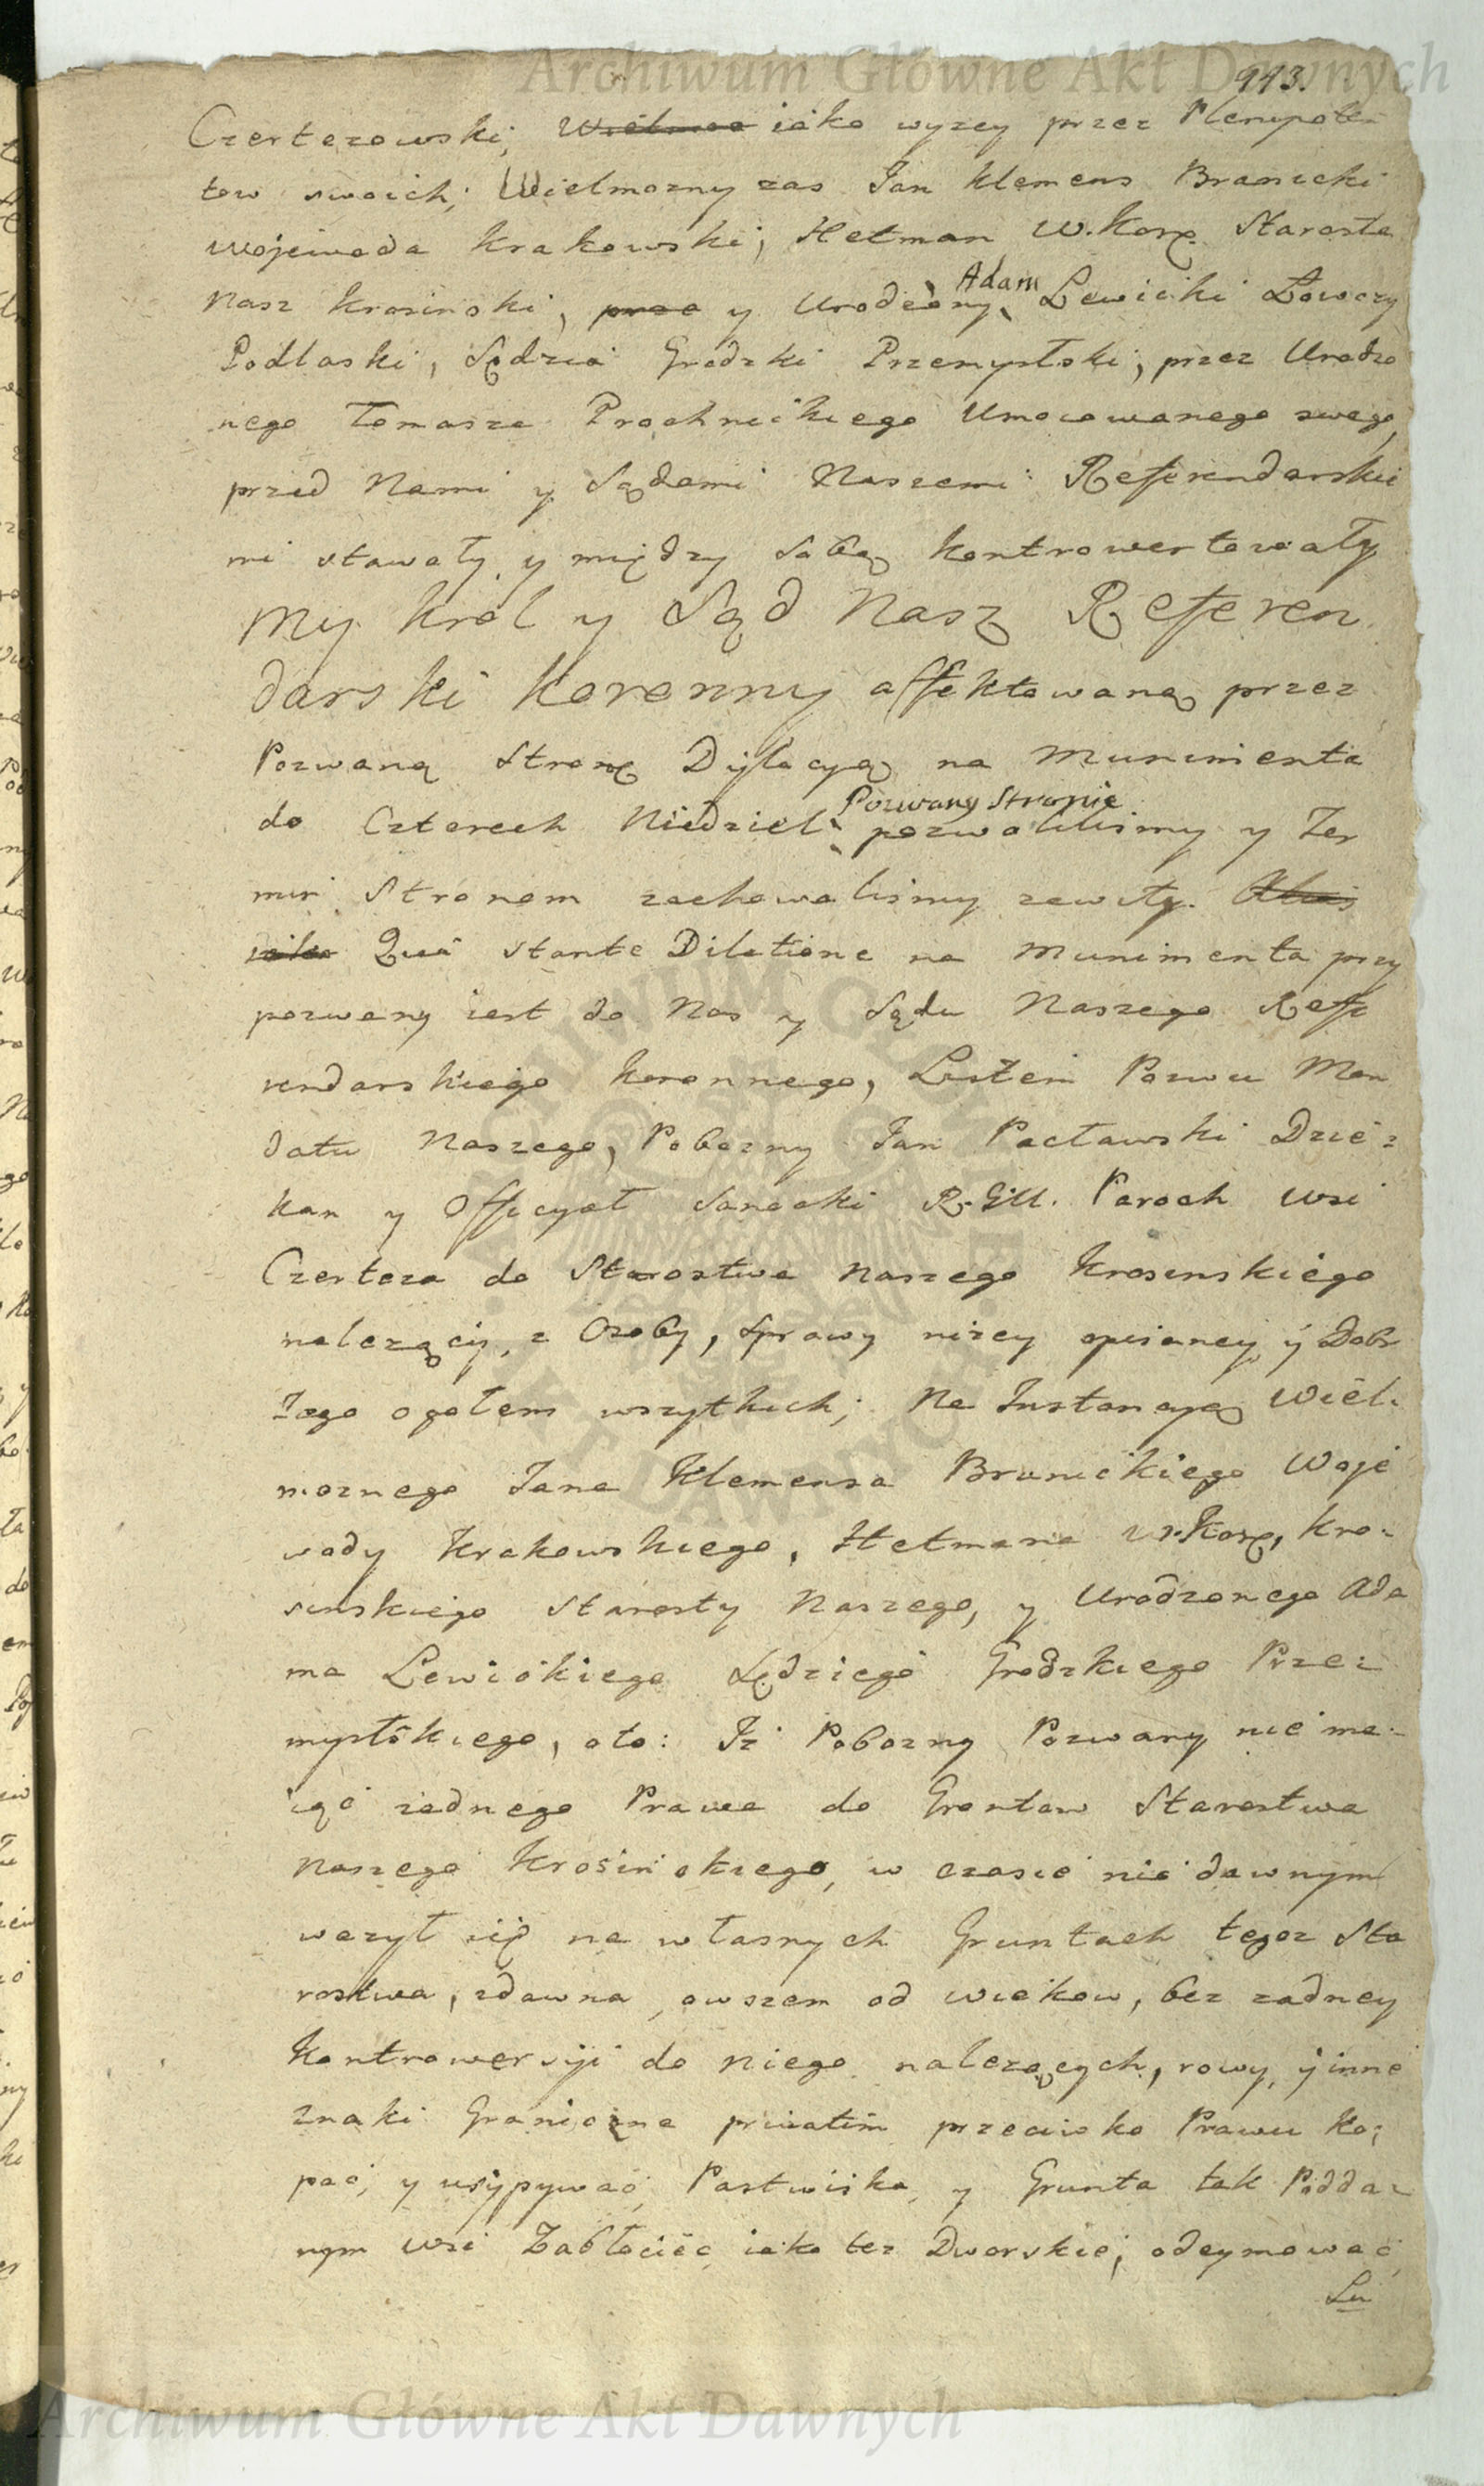 Archiwum Główne Akt Dawnych
943.
Czertezowski, Wielmoz iako wyzey przez Plenipoten
tow swoich; Wielmozny zas Jan Klemens Branicki
Wojewoda Krakowski, Hetman W. Kor. Starosta
Nasz Krosinski, prze y Urodzony Adam Lewicki Łowczy
Podlaski, Sędzia Grodzki Przemyslski, przez Urodzo
nego Tomasza Prochnickiego Umocowanego swego,
przed Nami y Sądami Naszemi Referendarskie
mi stawały y między sobą kontrowertowały
My Krol y Sąd Nasz Referen
darski Koronny affektowaną przez
Pozwaną Stronę Dylacyą na Munimenta
do Czterech Niedziel Pozwany Stronie pozwoliliśmy y Ter
min Stronom zachowaliśmy zawity.
Quâ stante Dilatione na Munimenta przy
pozwany iest do Nas y Sądu Naszego Refe
rendarskiego Koronnego, Listem Pozwu Man
datu Naszego, Pobozny Jan Pacławski Dzie
kan y Officyał Sanocki R. G. U. Paroch wsi
Czerteza do Starostwa Naszego Krosinskiego
nalezącey, z Osoby, Sprawy nizey opisaney y Dobr
Jego ogołem wszytkich; Na Instancyą Wiel
moznego Jana Klemensa Branickiego Woje
wody Krakowskiego, Hetmana W. Kor, Kro
sinskiego Starosty Naszego, y Urodzonego Ada
ma Lewickiego Sędziego Grodzkiego Prze
myslskiego, oto: Iz Pobozny Pozwany nie ma
iąc zadnego Prawa do Grontow Starostwa
Naszego Krosinskiego, w czasie nie dawnym
wazył się na własnych Gruntach tegoz Sta
rostwa, zdawna, owszem od wiekow, bez zadney
Kontrowersyi do niego nalezących, rowy, y inne
znaki Graniczne privatim przeciwko Prawu Ko
pać, y usypywać, Pastwiska, y Grunta tak Podda
nym wsi Zabłociec iako tez Dworskie, odeymować
Lu
Archiwum Główne Akt Dawnych